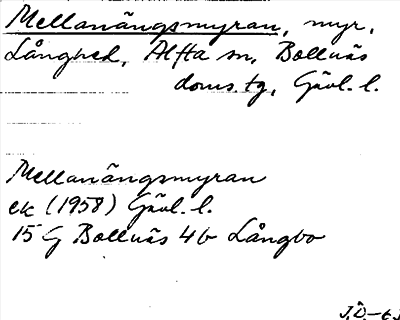 Mellanängsmyran, myr,
Långhed, Alfta sn, Bollnäs
doms.tg, Gävl. l.
Mellanängsmyran
ek (1958) Gävl. l.
15 G Bollnäs 4b Långbo
J.Ö.-63